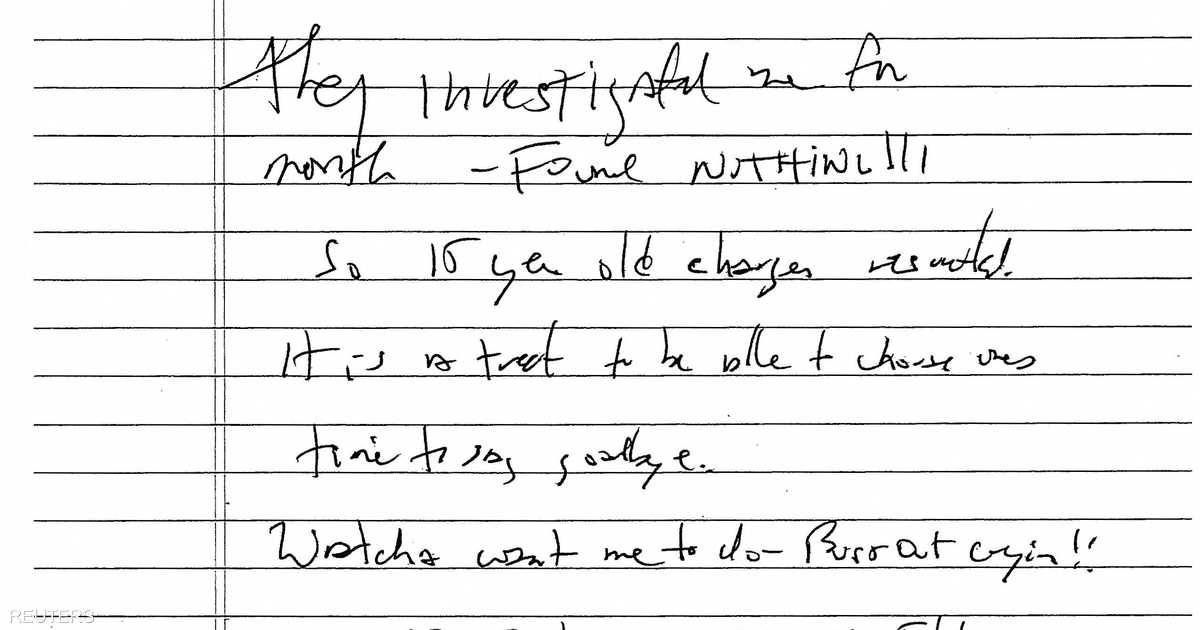 They investigated me for
month - Found NOTHING!!!
So 15 year old charges resulted.
It is a treat to be able to choose ones
time to say goodbye.
Watcha want me to do - Burst out cryin!!
REUTERS